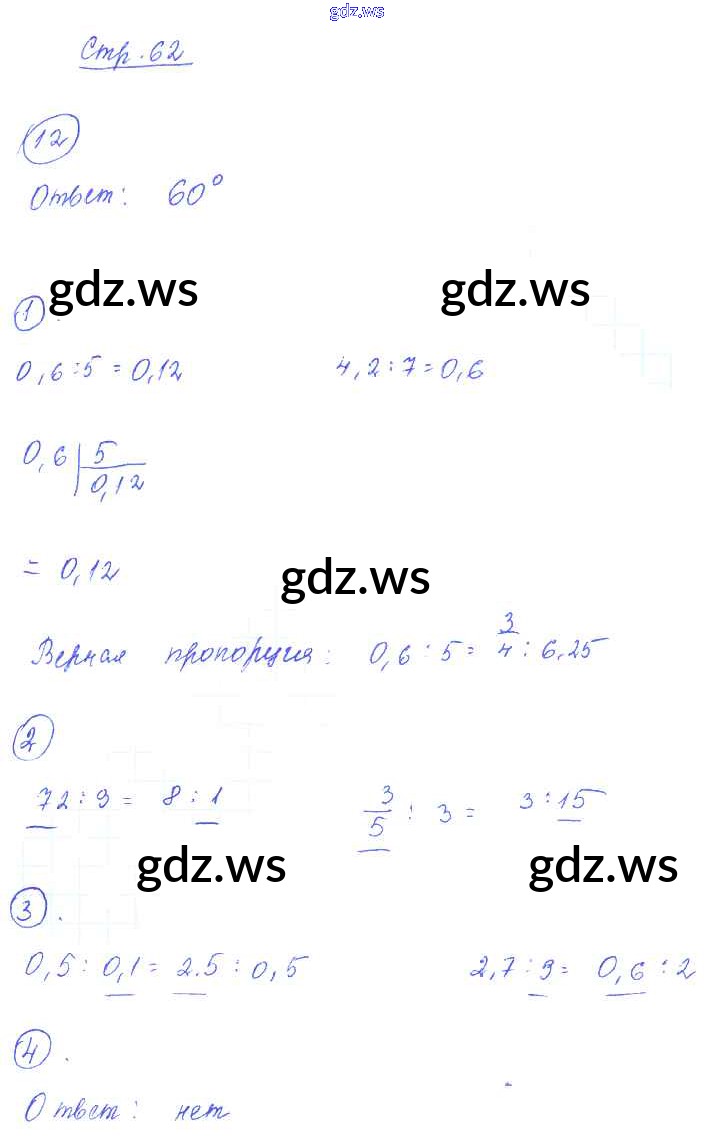 gdz.ws
Стр. 62
12
Ответ: 60°
gdz.ws gdz.ws
1.
0,6 : 5 = 0,12 4,2 : 7 = 0,6
0,6 | 5
0,12
= 0,12
gdz.ws
Верная пропорция: 0,6 : 5 = 3/4 : 6,25
2
72 : 9 = 8 : 1 3/5 : 3 = 3 : 15
gdz.ws gdz.ws
3.
0,5 : 0,1 = 2.5 : 0,5 2,7 : 9 = 0,6 : 2
4.
Ответ: нет